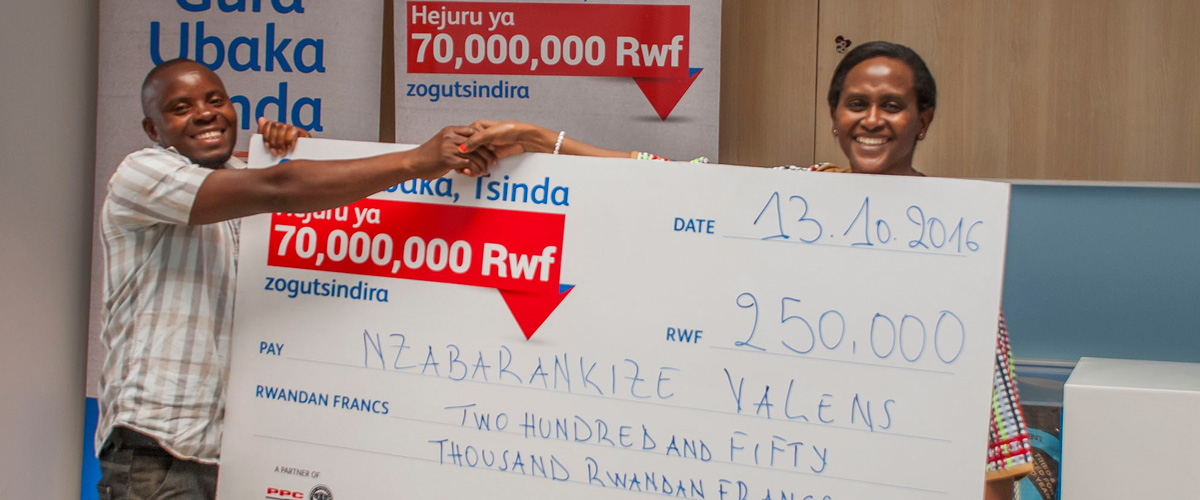 Ubaka
Hejuru ya
70,000,000 Rwf
zogutsindira
Tsinda
DATE 13.10.2016
Hejuru ya
70,000,000 Rwf
zogutsindira
RWF 250,000
PAY NZABARANKIZE VALENS
RWANDAN FRANCS TWO HUNDRED AND FIFTY
THOUSAND RWANDAN FRANCS
A PARTNER OF
PPC